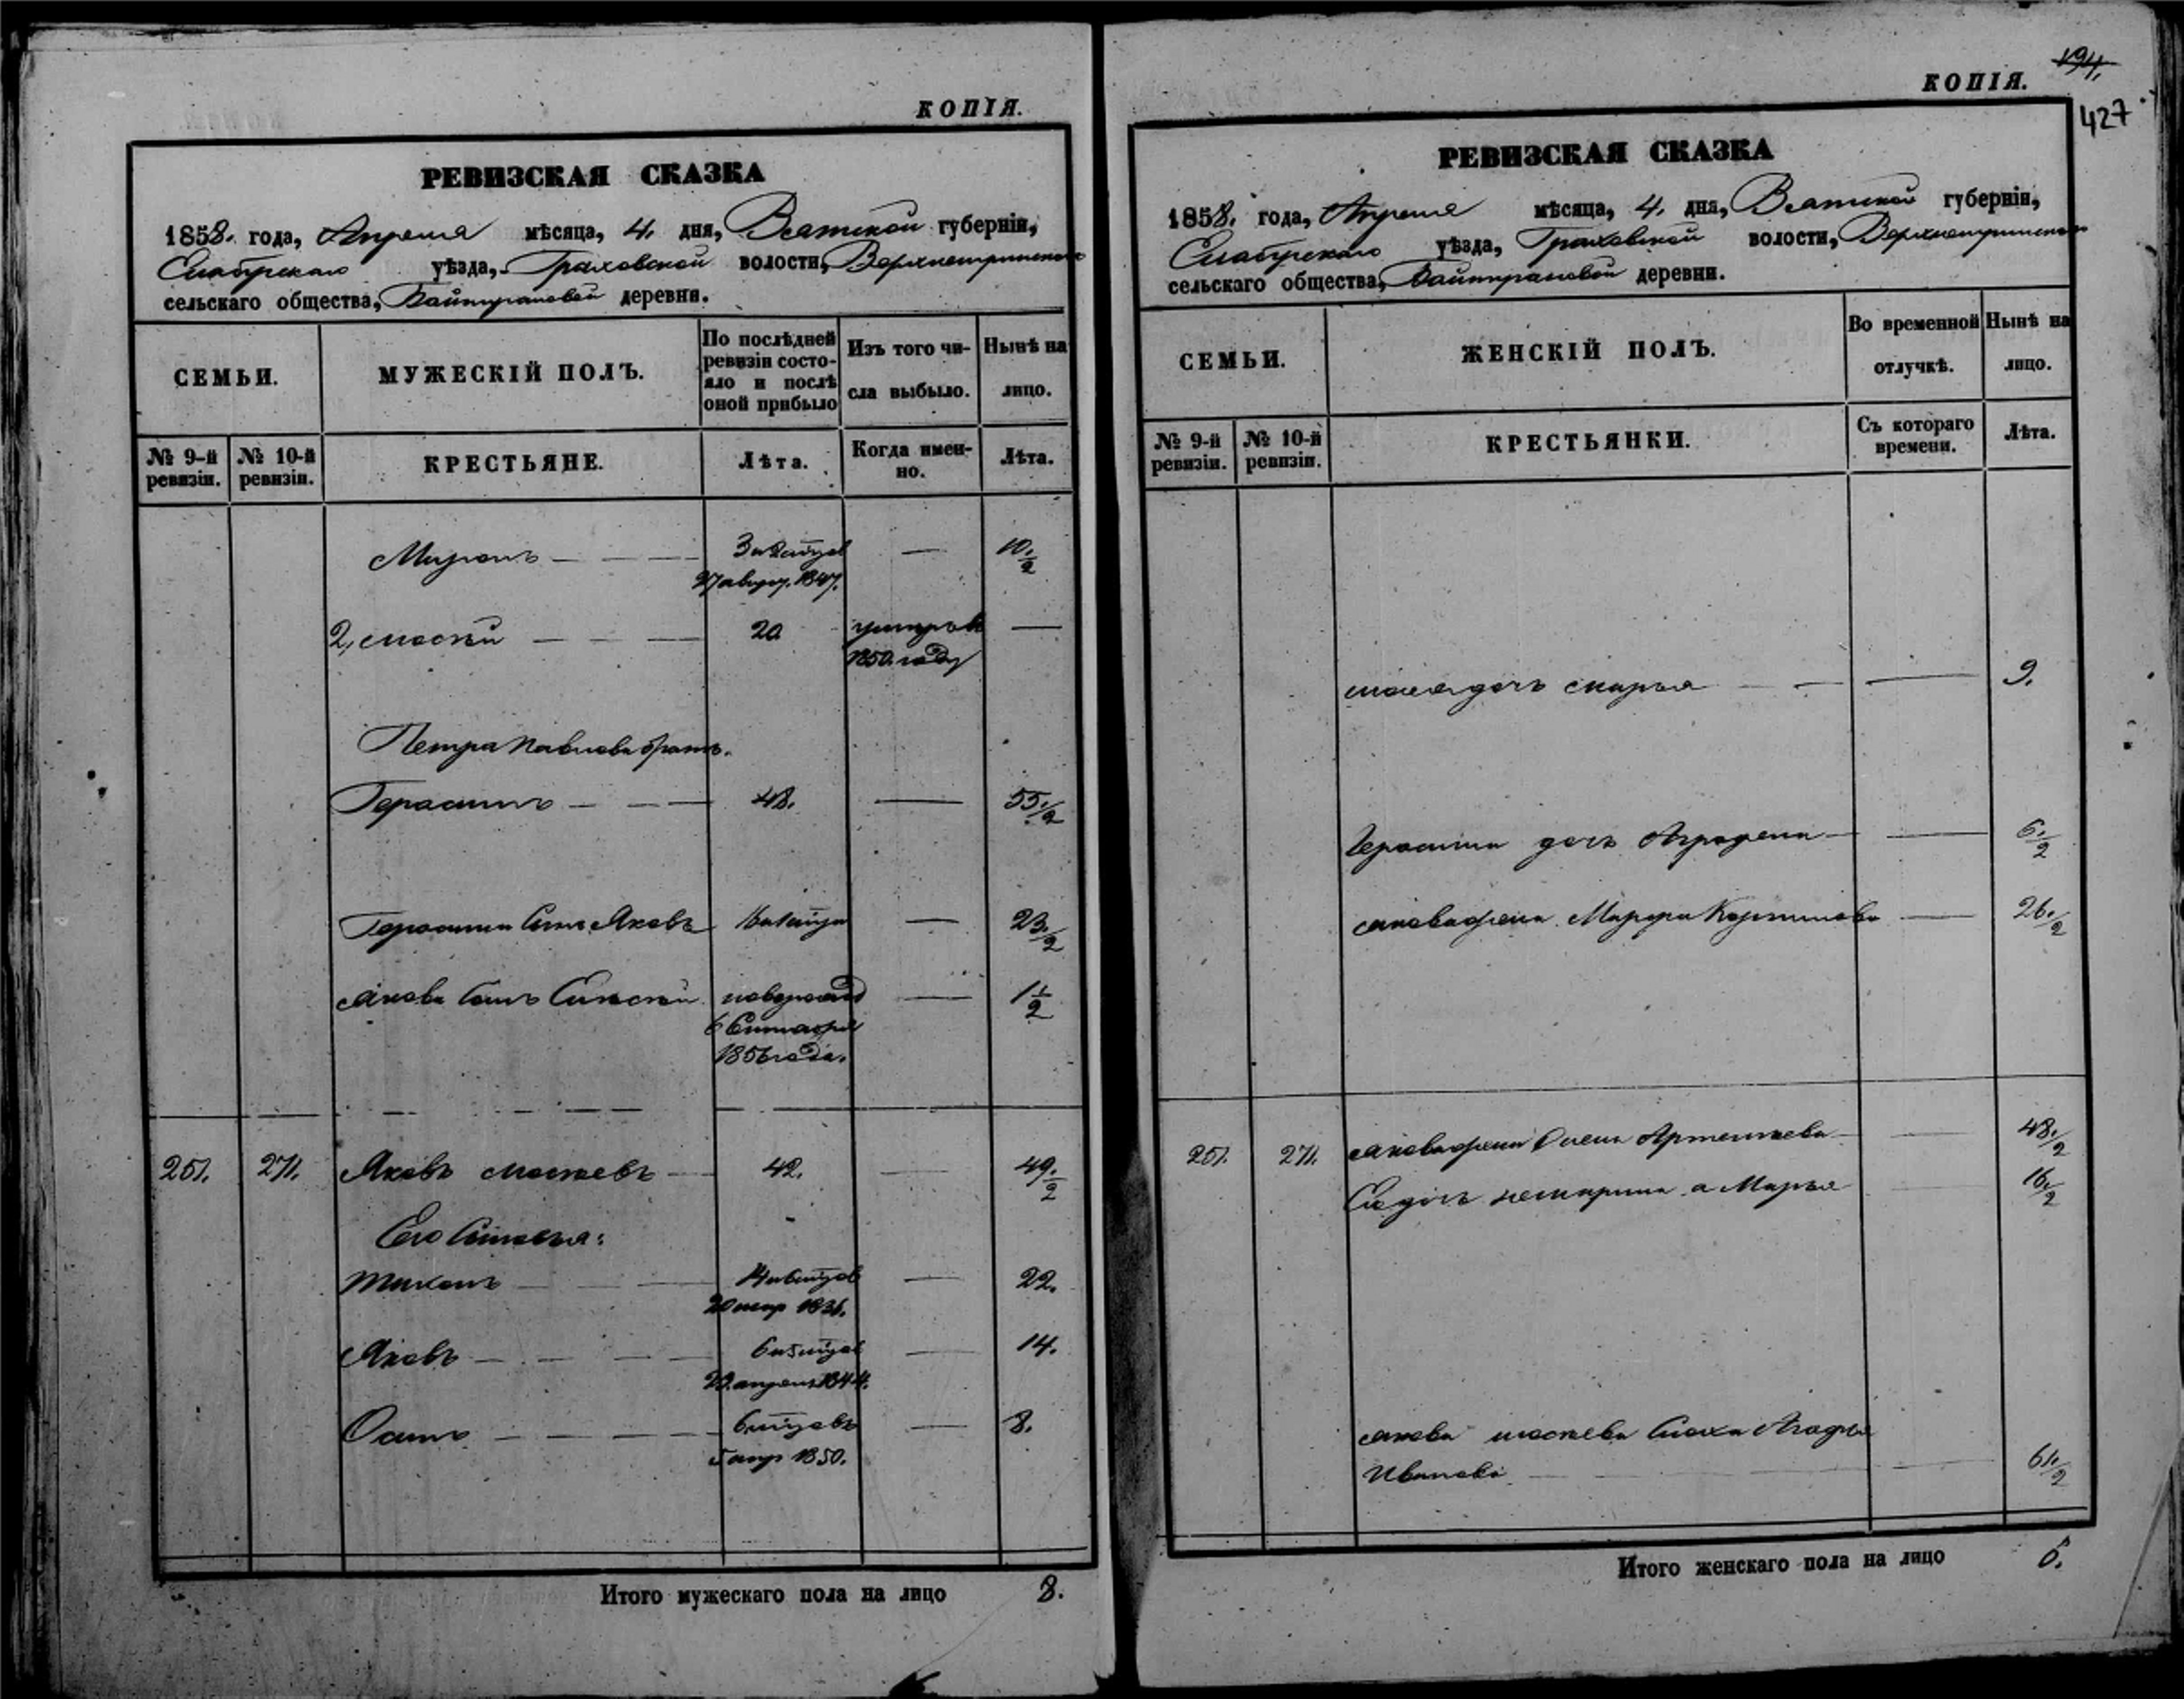 КОПІЯ.
РЕВИЗСКАЯ СКАЗКА
1858. года, Апреля мѣсяца, 4. дня, Вятской губерніи,
Елабужскаго уѣзда, Граховской волости,
сельскаго общества, Байтурановой деревни.
СЕМЬИ.
МУЖЕСКІЙ ПОЛЪ.
По послѣдней ревизіи состояло и послѣ оной прибыло
Изъ того числа выбыло.
Нынѣ на лицо.
№ 9-й ревизіи.
№ 10-й ревизіи.
КРЕСТЬЯНЕ.
Лѣта.
Когда именно.
Лѣта.
Миронъ — — — — 10 ½
27 август. 1847.
2, — — — 20 умеръ въ —
1850. году
Петра Павлова братъ.
Герасимъ — — — 48. — 55. ½
Герасима сынъ Яковъ — 23. ½
Якова сынъ Алексѣй новорожд — 1 ½
6 Сентября
1856 года.
251. 271. Яковъ Моисеевъ — 42. — 49. ½
Его Сыновья:
Тихонъ — — — 22.
Яковъ — — — — 14.
29. апреля 1844.
Осипъ — — — — — 8.
5 апр 1850.
Итого мужескаго пола на лицо 8.
194.
427
КОПІЯ.
РЕВИЗСКАЯ СКАЗКА
1858. года, Апреля мѣсяца, 4. дня, Вятской губерніи,
Елабужскаго уѣзда, Граховской волости,
сельскаго общества, Байтурановой деревни.
СЕМЬИ.
ЖЕНСКІЙ ПОЛЪ.
Во временной отлучкѣ.
Нынѣ на лицо.
№ 9-й ревизіи.
№ 10-й ревизіи.
КРЕСТЬЯНКИ.
Съ котораго времени.
Лѣта.
дочь Марья — — — 9.
Герасима дочь Аграфена — — 6. ½
Якова жена Марфа — 26. ½
251. 271. Якова жена Олена Артемьева — — 48. ½
Ея дочь Марья — 16. ½
Якова Моисеева Сноха
Иванова — — — 61. ½
Итого женскаго пола на лицо 6.